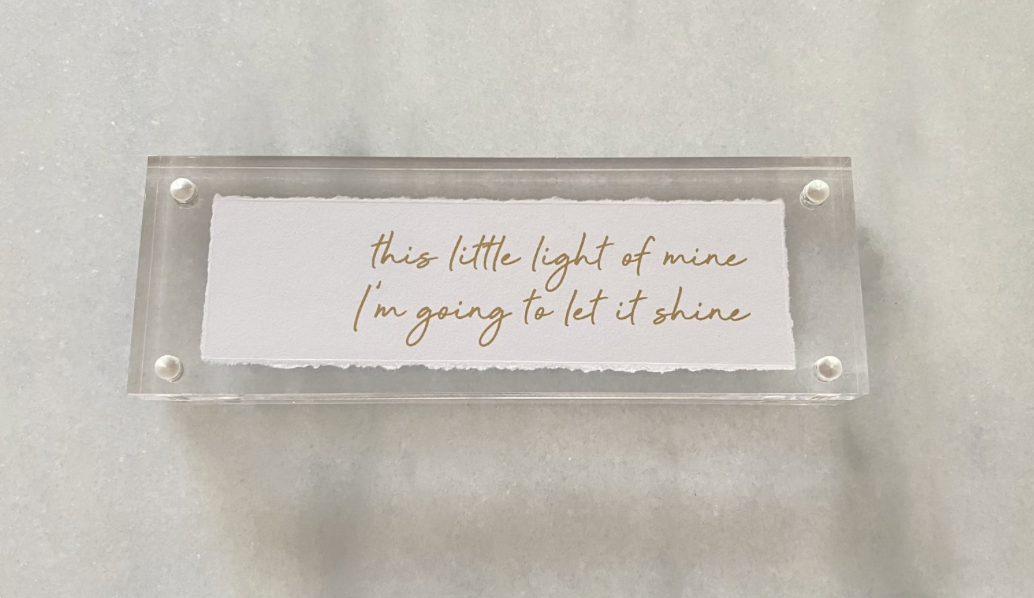 this little light of mine
I'm going to let it shine